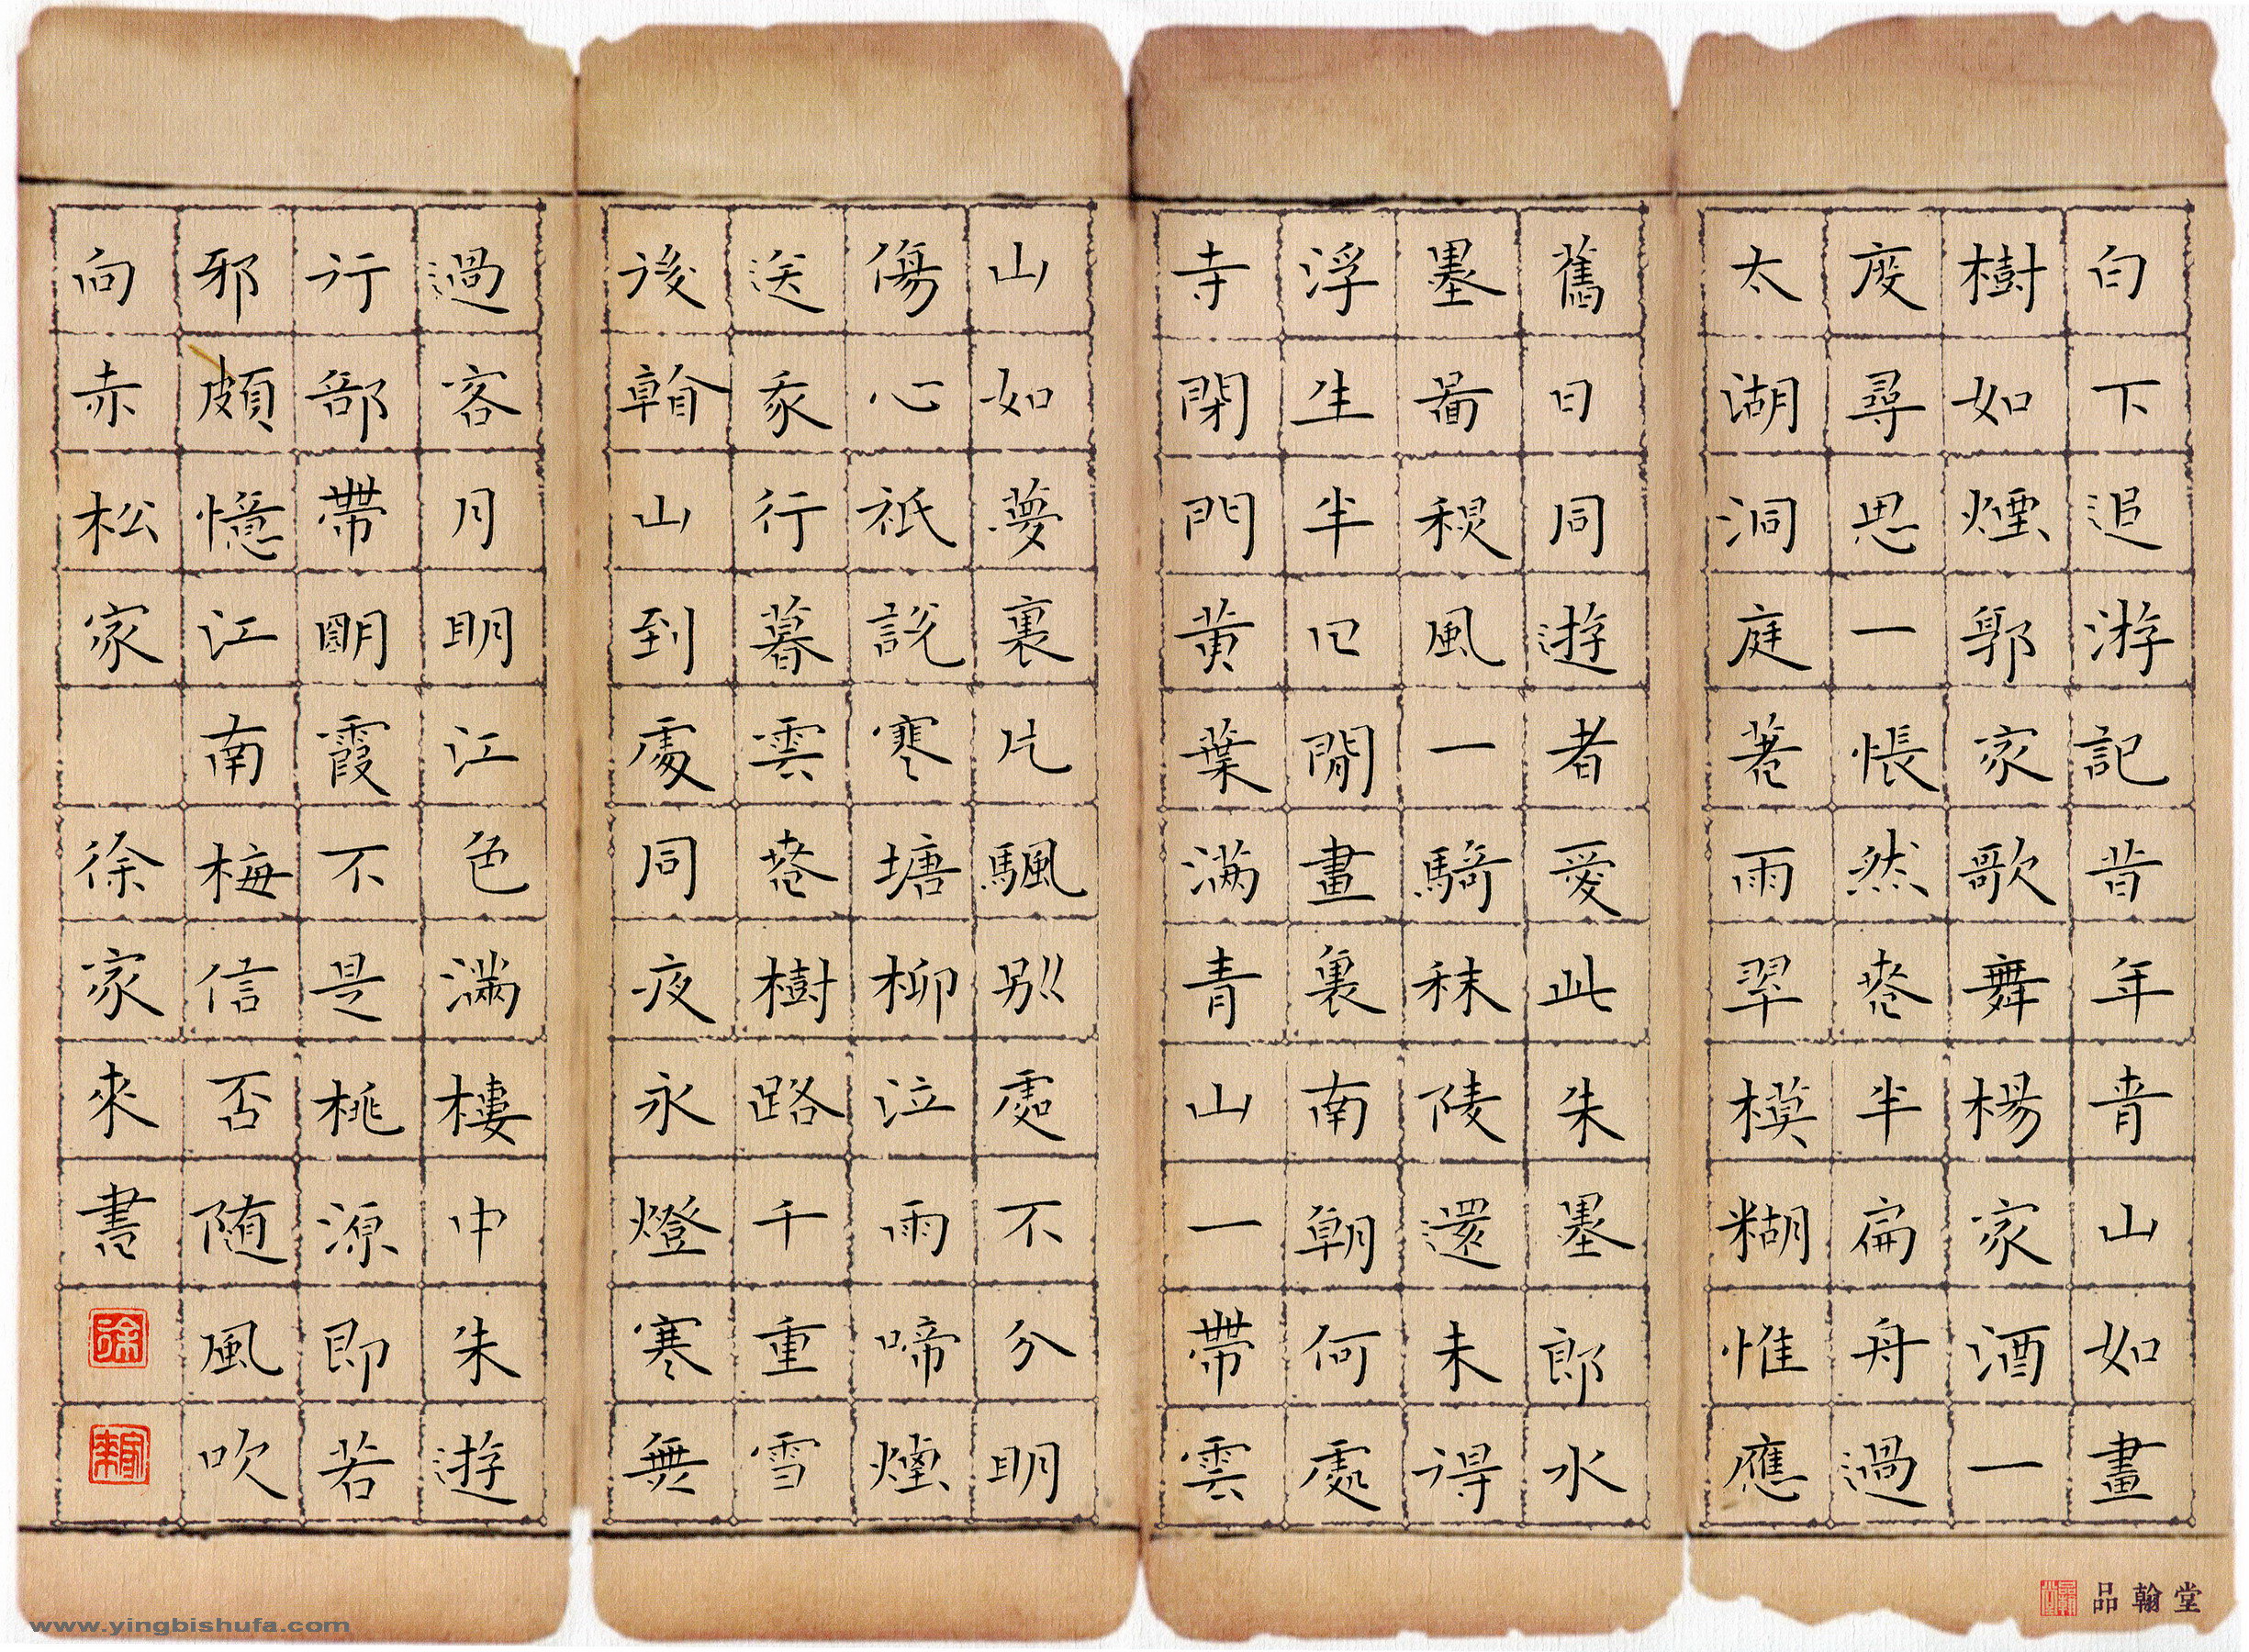 白下追游記昔年青山如畫
樹如煙郭家歌舞楊家酒一
度尋思一悵然春半扁舟過
太湖洞庭春雨翠模糊惟應
舊日同遊者愛此朱墨郎水
墨啚秋風一騎秣陵還未得
浮生半日閒畫裏南朝何處
寺閉門黃葉滿青山一帶雲
山如夢裏片颿別處不分明
傷心祇說寒塘柳泣雨啼煙
送行暮雲春樹路千重雪
後看山到處同夜永燈寒無
過客月明江色滿樓中朱遊
行部帶朙霞不是桃源即若
邪頗憶江南梅信否随風吹
向赤松家 徐家來書
品翰堂
www.yingbishufa.com